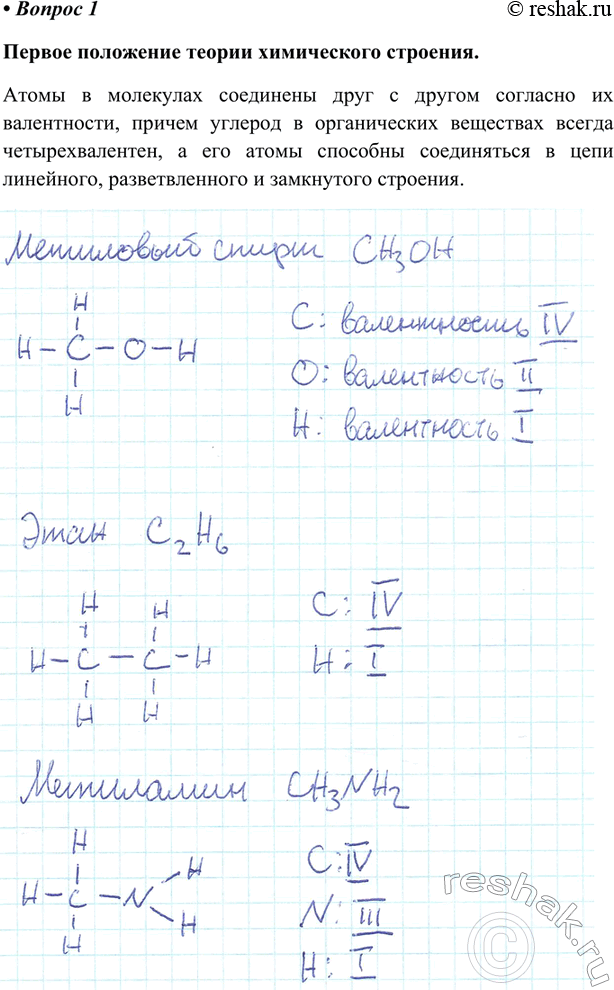 • Вопрос 1
© reshak.ru
Первое положение теории химического строения.
Атомы в молекулах соединены друг с другом согласно их
валентности, причем углерод в органических веществах всегда
четырехвалентен, а его атомы способны соединяться в цепи
линейного, разветвленного и замкнутого строения.
Метиловый спирт CH₃OH
H
H - C - O - H
H
C: валентность IV
O: валентность II
H: валентность I
Этан C₂H₆
H H
H - C - C - H
H H
C: IV
H: I
Метиламин CH₃NH₂
H
H
H - C - N
H
H
C: IV
N: III
H: I
reshak.ru